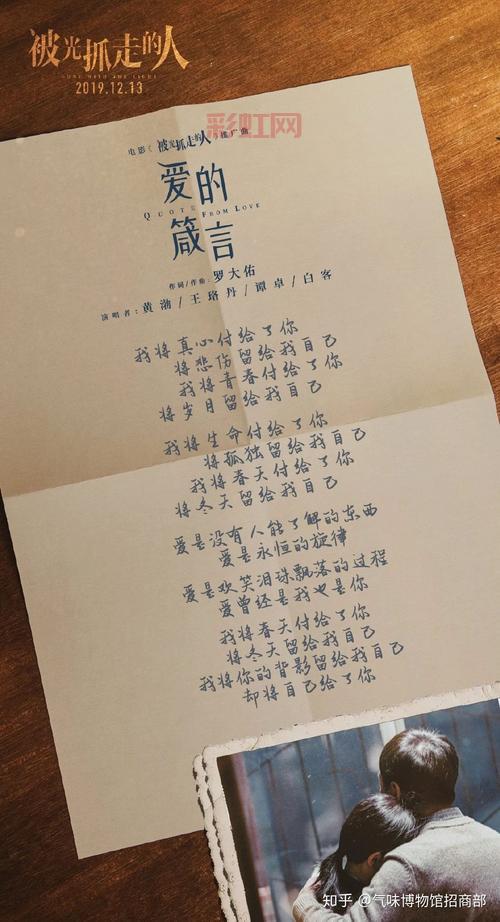 被光抓走的人
GONE WITH THE LIGHT
2019.12.13
彩虹网
电影《被光抓走的人》推广曲
爱的
QUOTE FROM LOVE
箴言
作词/作曲:罗大佑
演唱者:黄渤/王珞丹/谭卓/白客
我将真心付给了你
将悲伤留给我自己
我将青春付给了你
将岁月留给我自己
我将生命付给了你
将孤独留给我自己
我将春天付给了你
将冬天留给我自己
爱是没有人能了解的东西
爱是永恒的旋律
爱是欢笑泪珠飘落的过程
爱曾经是我也是你
我将春天付给了你
将冬天留给我自己
我将你的背影留给我自己
却将自己给了你
知乎 @气味博物馆招商部